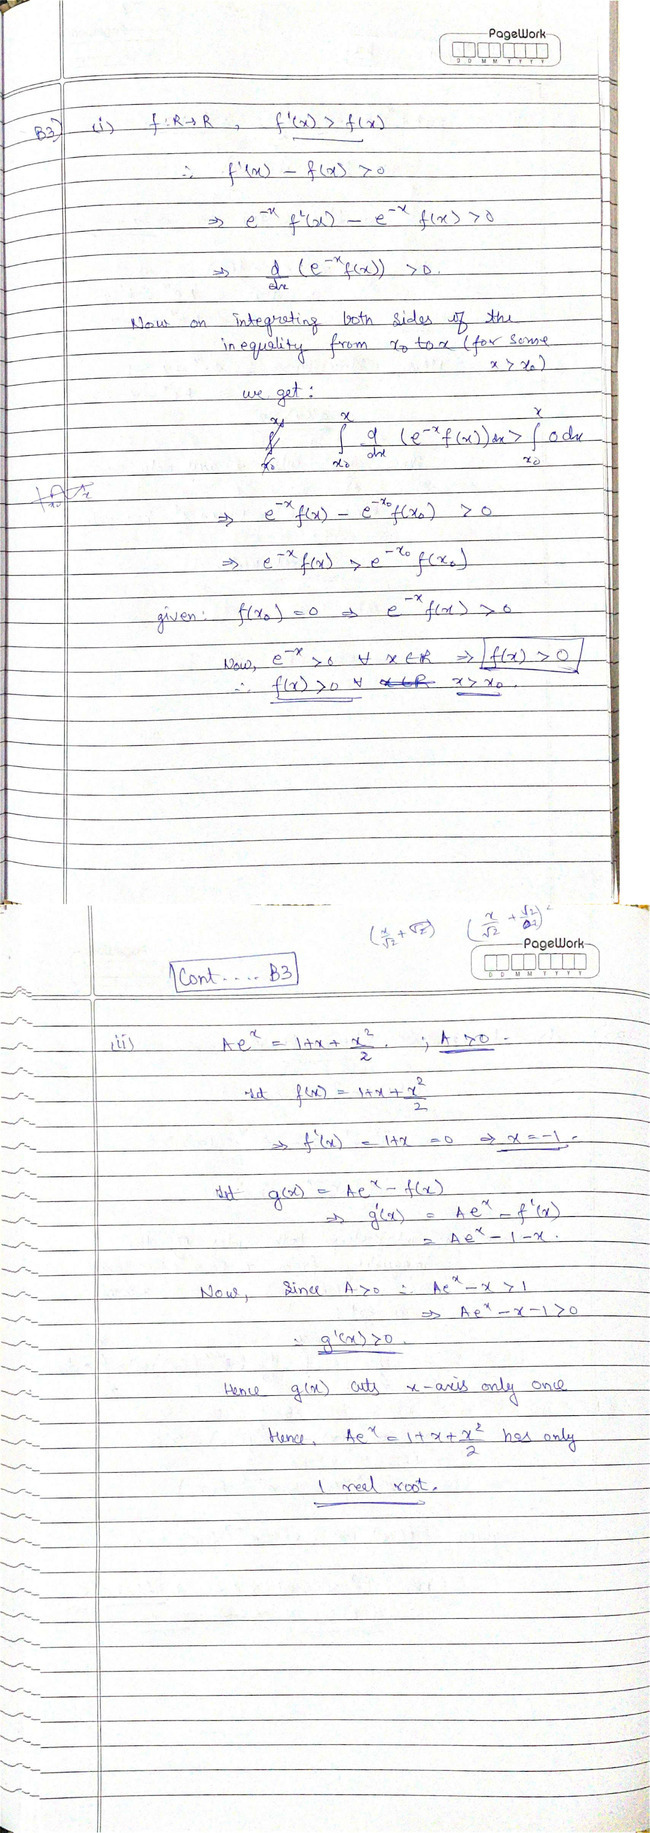 PageWork
D D M M Y Y Y Y
B3) (i) f: R→R , f'(x) > f(x)
∴ f'(x) - f(x) > 0
⇒ e^{-x} f'(x) - e^{-x} f(x) > 0
⇒ d/dx (e^{-x} f(x)) > 0.
Now on integrating both sides of the
inequality from x₀ to x (for some
x > x₀)
we get :
∫_{x₀}^{x} d/dx (e^{-x} f(x)) dx > ∫_{x₀}^{x} 0 dx
⇒ e^{-x} f(x) - e^{-x₀} f(x₀) > 0
⇒ e^{-x} f(x) > e^{-x₀} f(x₀)
given: f(x₀) = 0 ⇒ e^{-x} f(x) > 0
Now, e^{-x} > 0 ∀ x ∈ R ⇒ f(x) > 0
∴ f(x) > 0 ∀ x ∈ R x > x₀.
(x/√2 + √2) (x/√2 + √2/2)²
PageWork
D D M M Y Y Y Y
Cont..... B3
iii) Ae^x = 1+x+x²/2. ; A > 0.
Let f(x) = 1+x+x²/2
⇒ f'(x) = 1+x = 0 ⇒ x = -1.
Let g(x) = Ae^x - f(x)
⇒ g'(x) = Ae^x - f'(x)
= Ae^x - 1 - x.
Now, Since A>0 ∴ Ae^x - x > 1
⇒ Ae^x - x - 1 > 0
∴ g'(x) > 0.
Hence g(x) cuts x-axis only once
Hence, Ae^x = 1+x+x²/2 has only
1 real root.